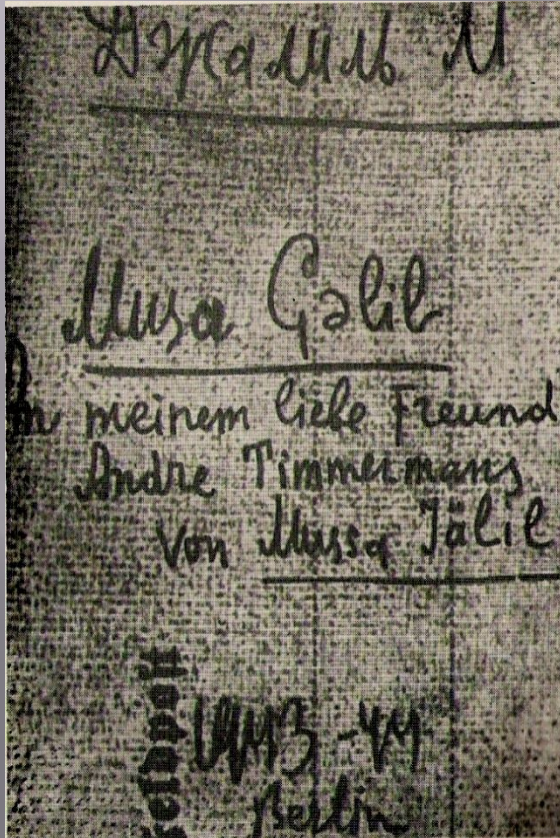 Джалиль М
Musa Gəlil
An meinem liebe Freund
Andre Timmermans
Von Mussa Jälil
1943-44
Berlin